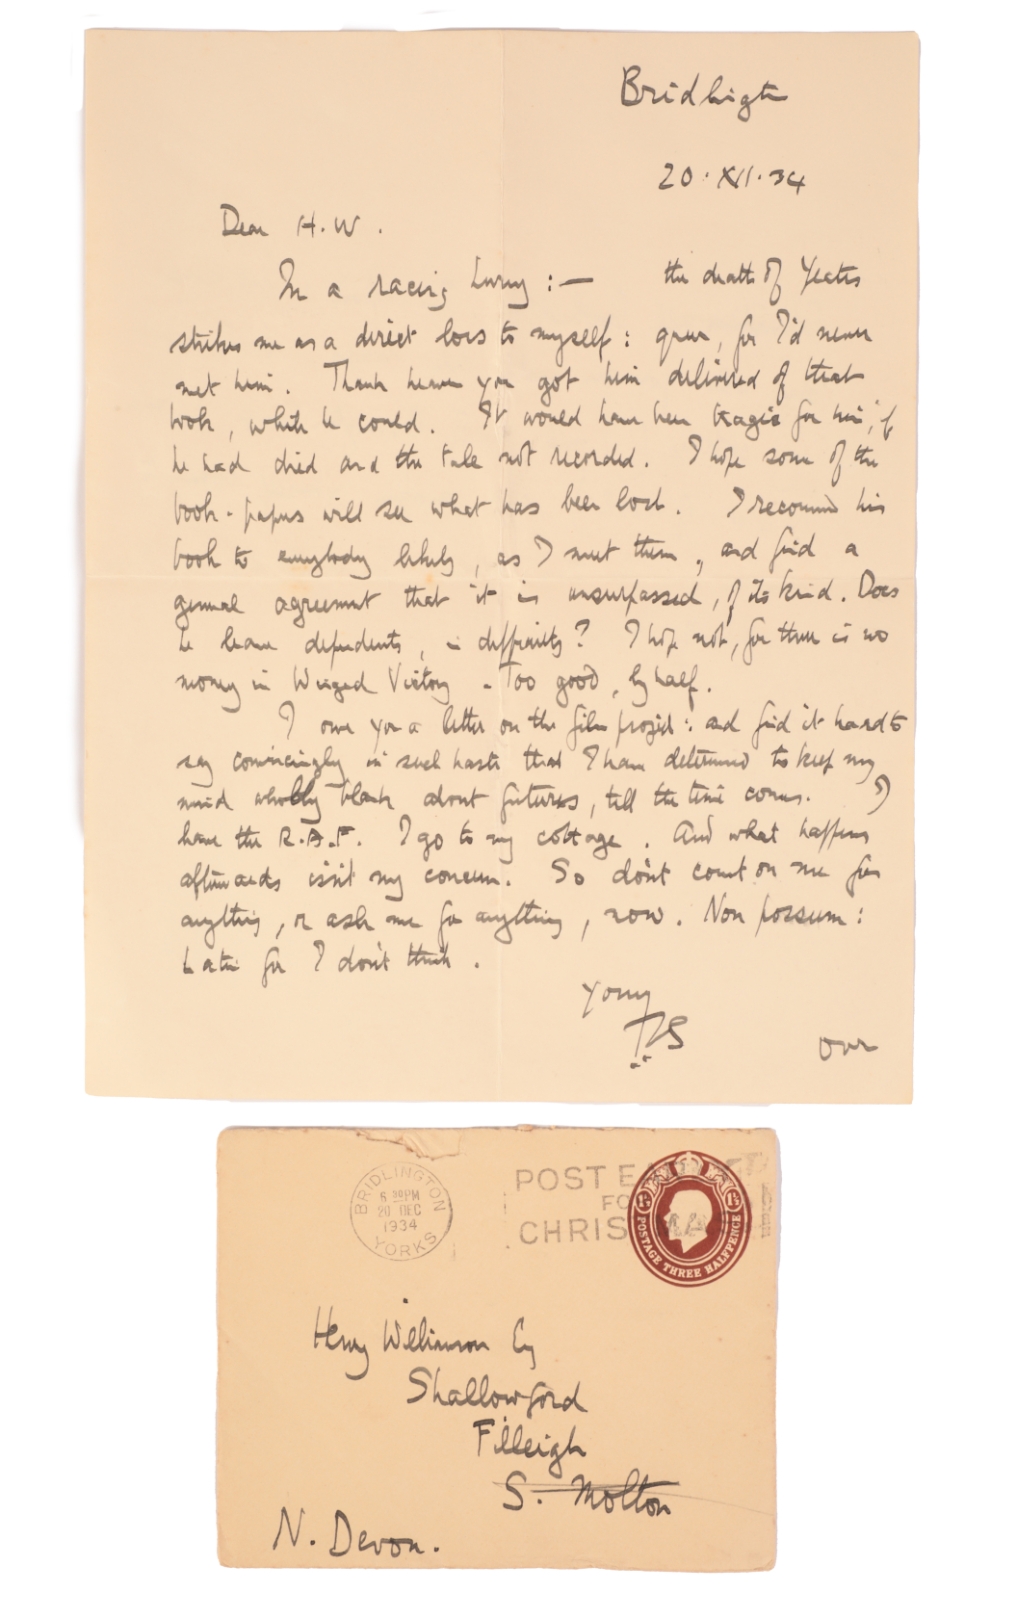 Bridlington
20.XII.34
Dear H.W.
In a racing hurry :— the death of Yeates
strikes me as a direct loss to myself : queer, for I'd never
met him. Thank heaven you got him delivered of that
book, while he could. It would have been tragic for him, if
he had died and the tale not recorded. I hope some of the
book-papers will see what has been lost. I recommend his
book to everybody likely, as I meet them, and find a
general agreement that it is unsurpassed, of its kind. Does
he leave dependents, in difficulty? I hope not, for there is no
money in Winged Victory - Too good, by half.
I owe you a letter on the film project : and find it hard to
say convincingly in such haste that I have determined to keep my
mind wholly blank about futures, till the time comes. I
leave the R.A.F. I go to my cottage. And what happens
afterwards isn't my concern. So don't count on me for
anything, or ask me for anything, now. Non possum :
Latin for I don't think.
Yours
TES
Over
BRIDLINGTON
6 30PM
20 DEC
1934
YORKS
POST EARLY
FOR
CHRISTMAS
POSTAGE THREE HALFPENCE
Henry Williamson Esq
Shallowford
Filleigh
S. Molton
N. Devon.